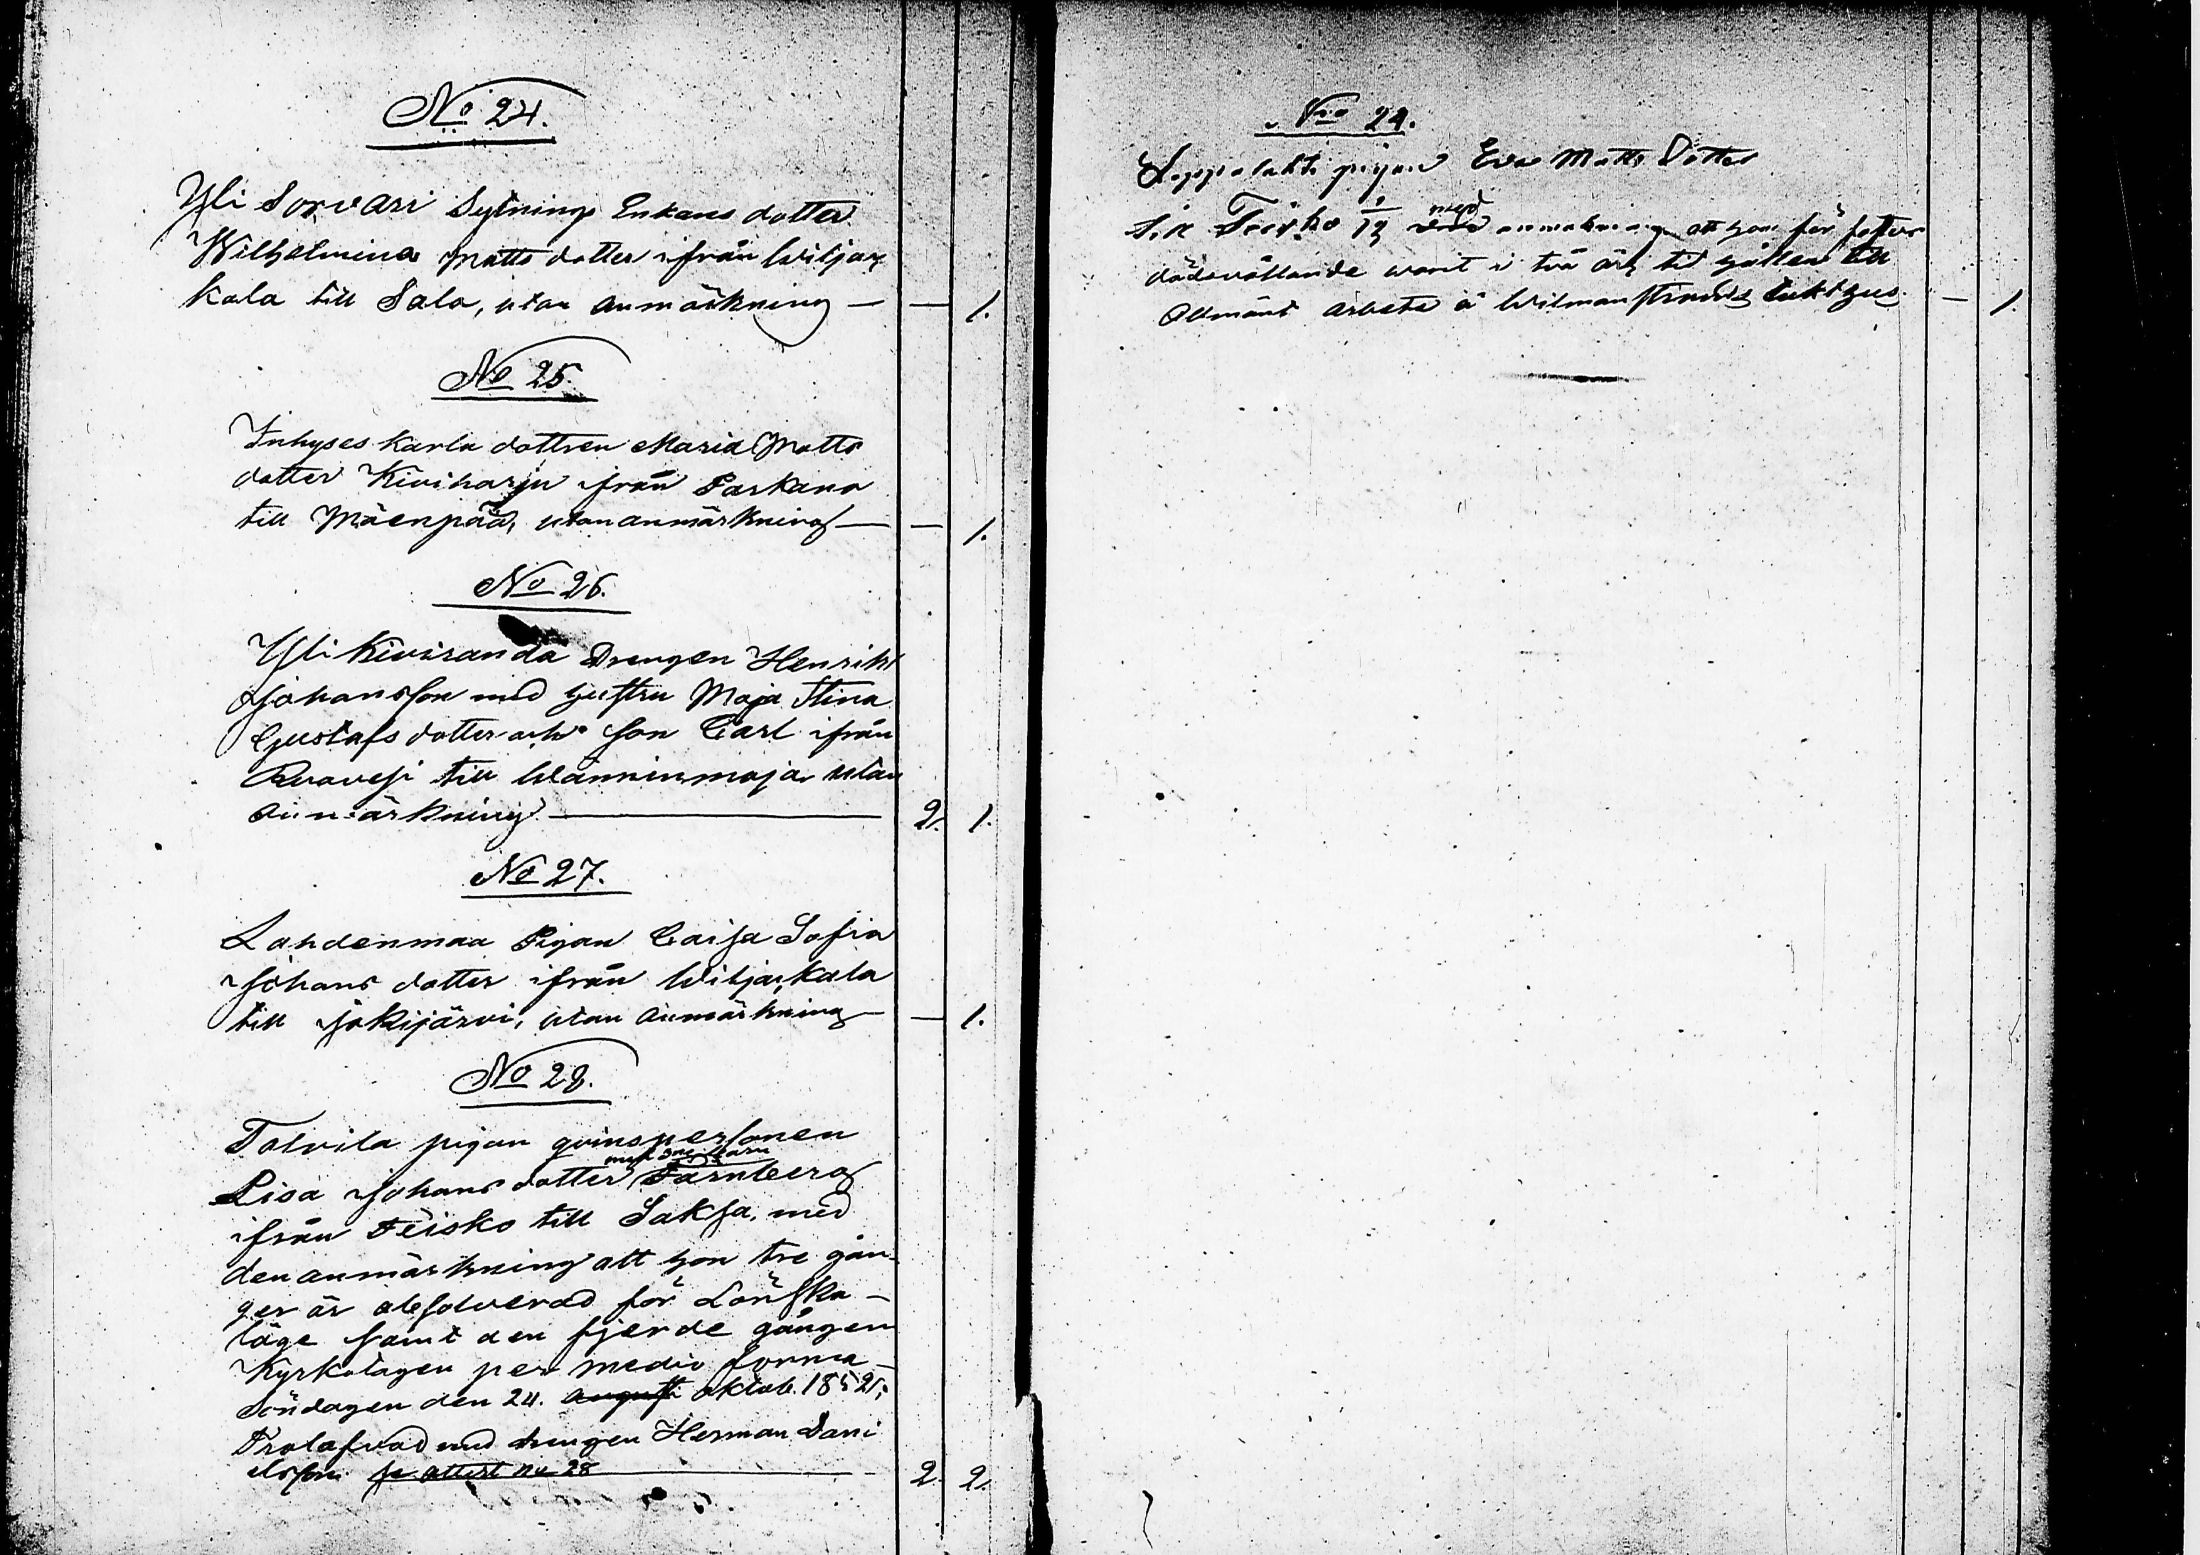 No 24.
Yli Sorvari Sytnings Enkans dotter
Wilhelmina Matts dotter ifrån Wiljak
kala till Salo, utan anmärkning — — 1.
No 25.
Inhyses Karla dottren Maria Matts
dotter Kiviharju ifrån Parkano
till Mäenpää, utan anmärkning — — 1.
No 26.
Yli Kiviranda Drengen Henrik
Johansson med hustru Maja Stina
Gustafs dotter och son Carl ifrån
Ruovesi till Wänninmaja utan
anmärkning — 2. 1.
No 27.
Lahdenmaa Pigan Caisa Sofia
Johans dotter ifrån Wiljakkala
till Jokijärvi, utan anmärkning — — 1.
No 28.
Tolvila pigan qvinspersonen
Lisa Johans dotter
ifrån Teisko till Saksa, med
den anmärkning att hon tre gån-
ger är absolverad för Lönska-
läge samt den fjerde gången
Kyrkotagen per medio forma
Söndagen den 24. augusti oktob. 1852,
Trolofvad med drengen Herman Dani
elsson. attest no 28 — 2. 2.
No 29.
pigan Eva Matts Dotter
med anmärkning att hon för fosters
dödsvållande warit i två års tid hållen till
Allmänt arbete å Wilmanstrands tukthus. — 1.